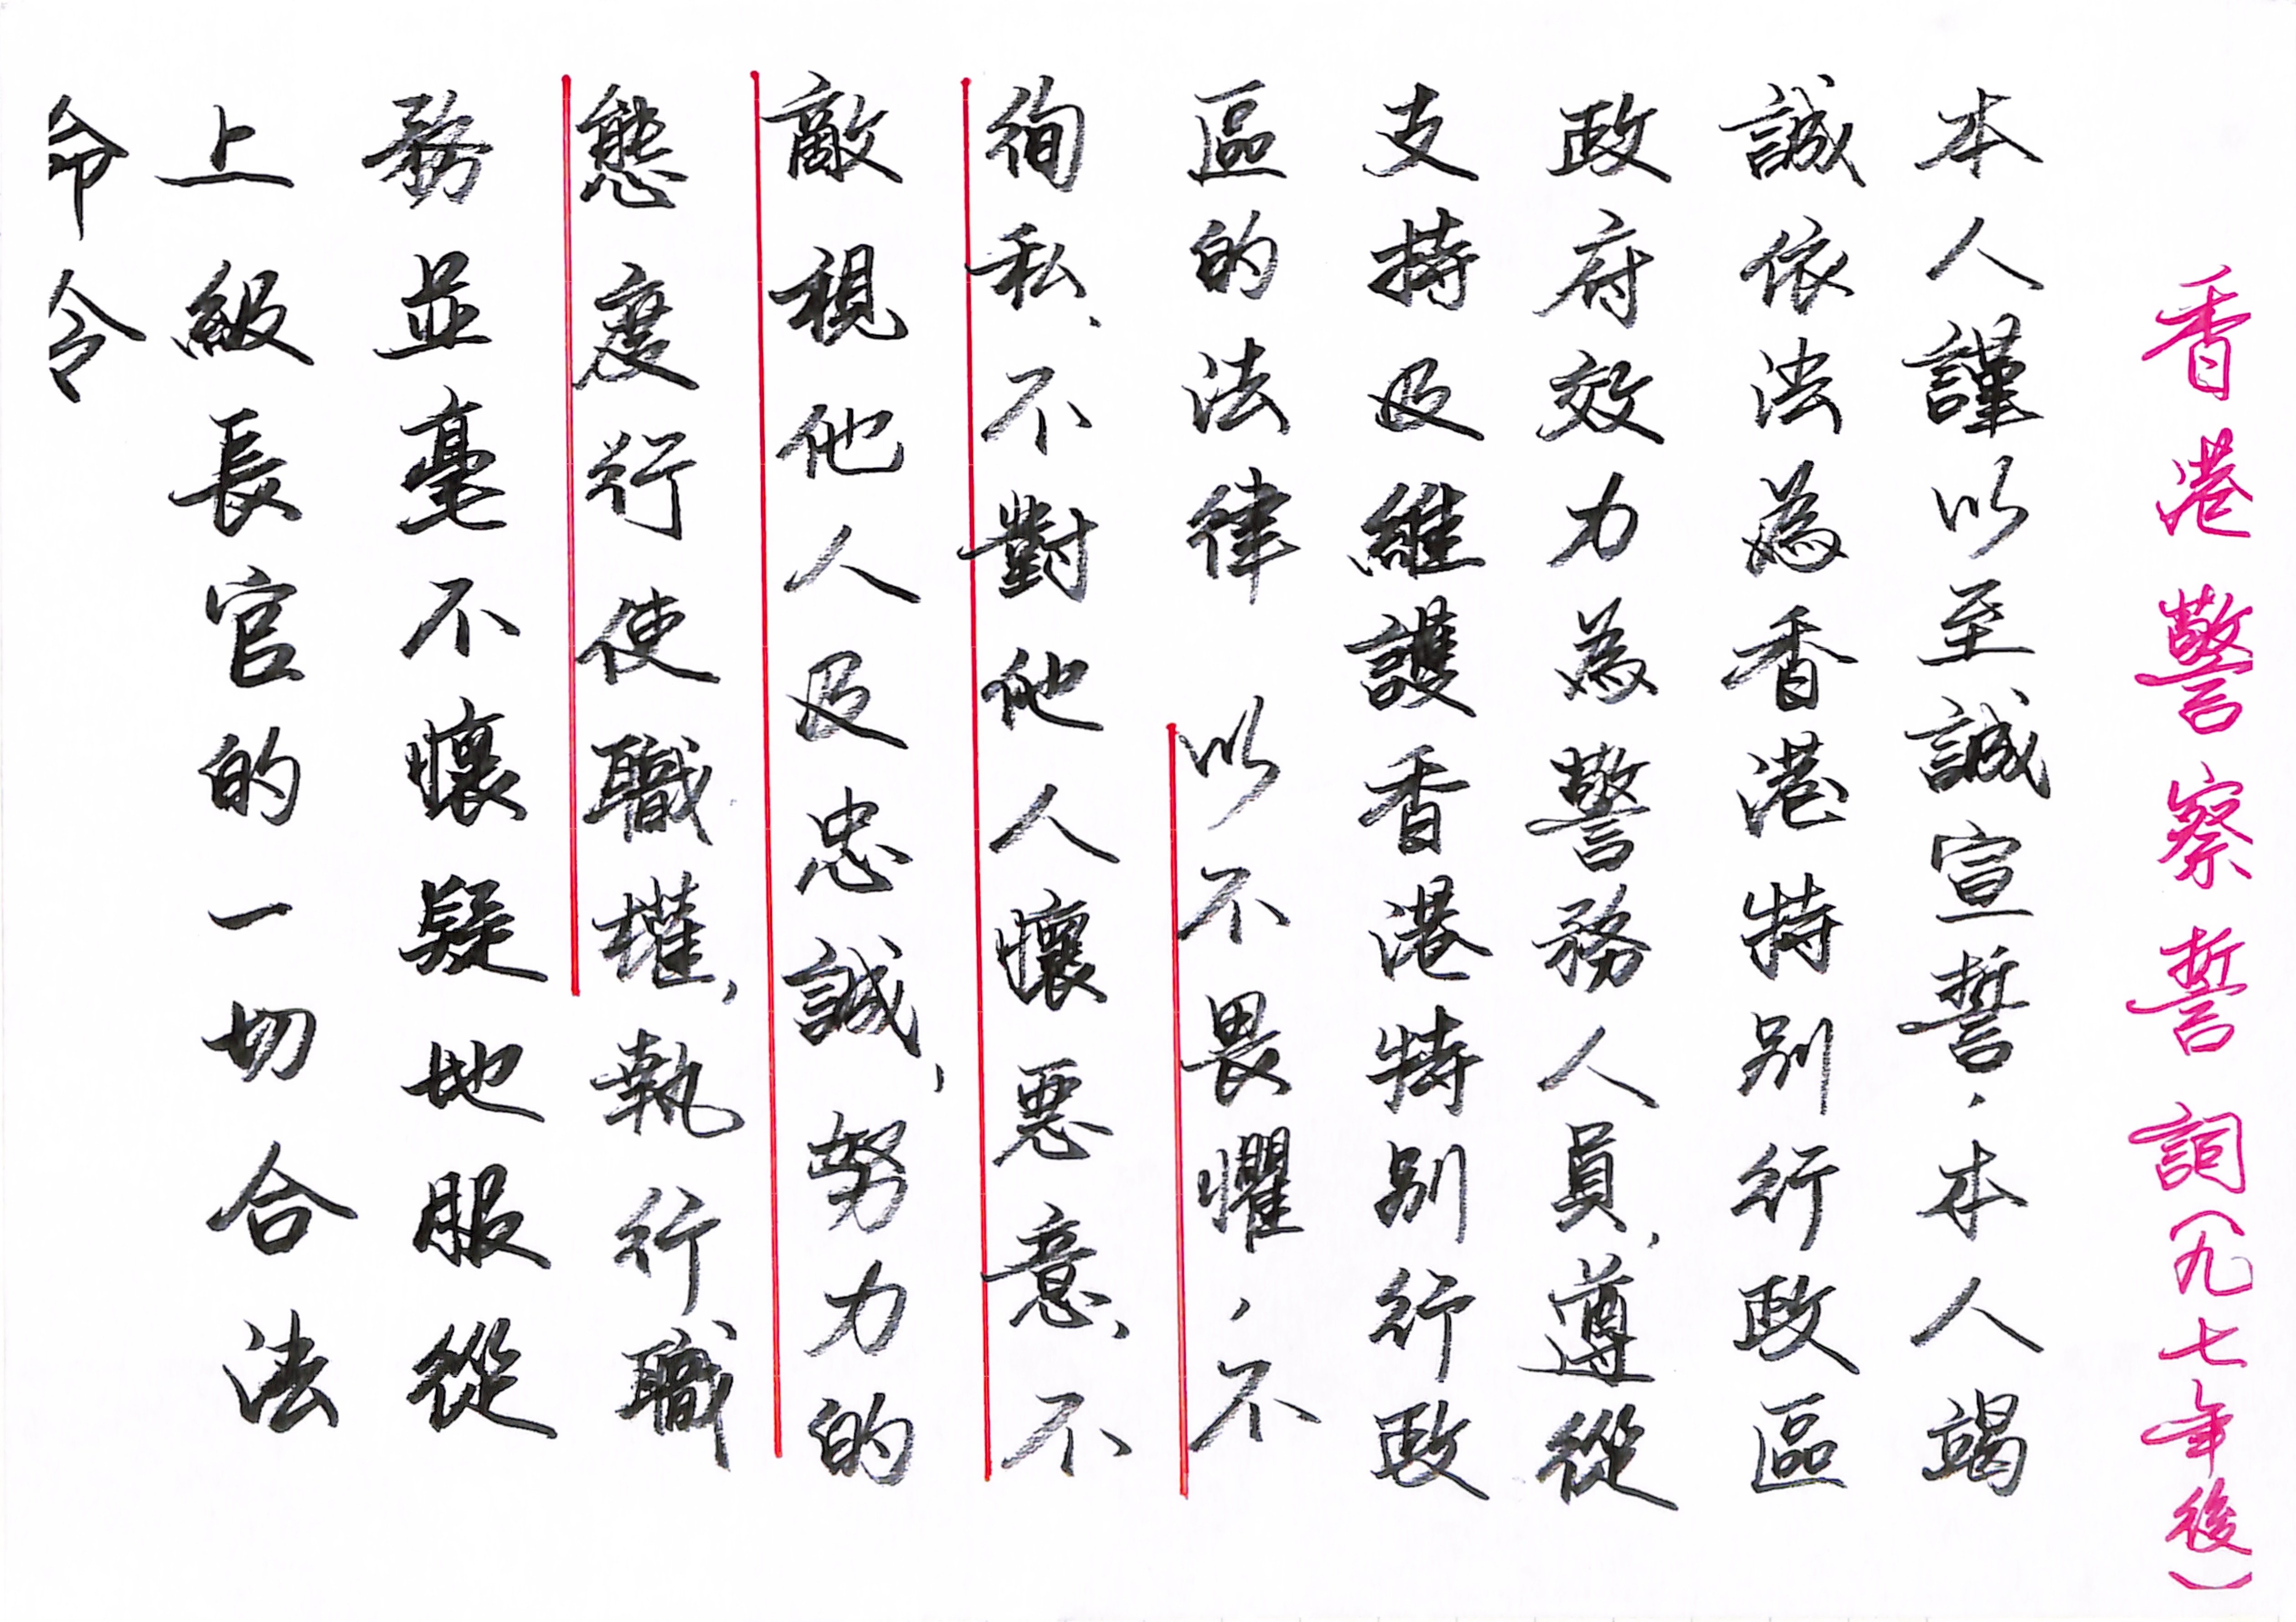 香港警察誓詞（九七年後）
本人謹以至誠宣誓，本人竭
誠依法為香港特別行政區
政府效力為警務人員，遵從
支持及維護香港特別行政
區的法律 以不畏懼，不
徇私，不對他人懷惡意，不
敵視他人及忠誠，努力的
態度行使職權，執行職
務並毫不懷疑地服從
上級長官的一切合法
命令